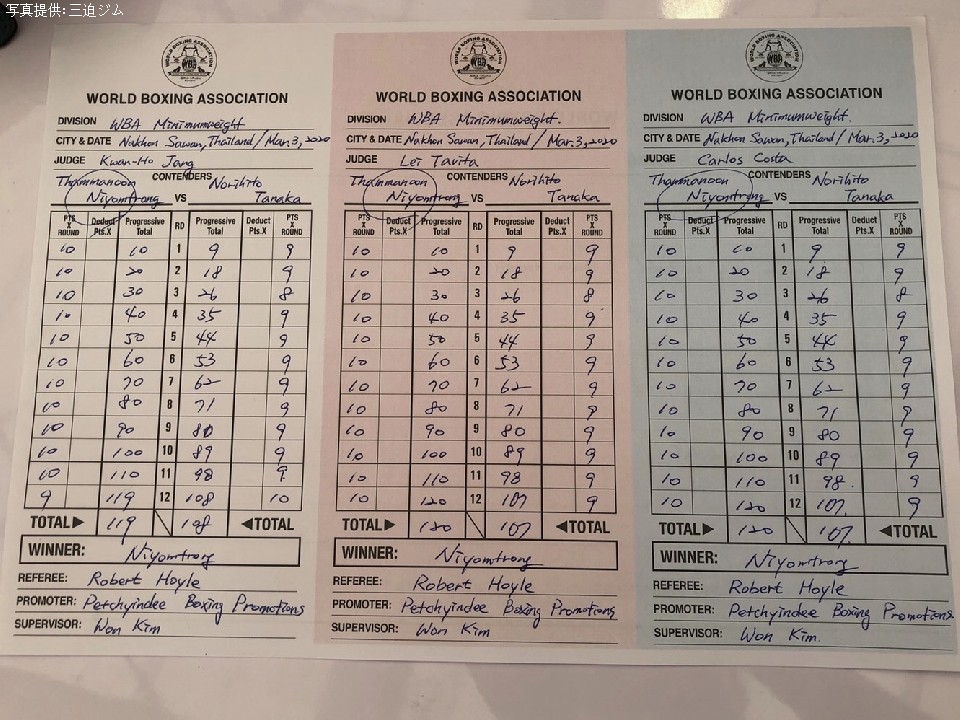 写真提供:三迫ジム
WORLD BOXING ASSOCIATION
DIVISION WBA Minimumweight
CITY & DATE Nakhon Sawan, Thailand / Mar. 3, 2020
JUDGE Kwan-Ho Jang
CONTENDERS
Thammanoon Norihito
Niyomtrong VS Tanaka
PTS X ROUND Deduct Pts.X Progressive Total RD Progressive Total Deduct Pts.X PTS X ROUND
10 10 1 9 9
10 20 2 18 9
10 30 3 26 8
10 40 4 35 9
10 50 5 44 9
10 60 6 53 9
10 70 7 62 9
10 80 8 71 9
10 90 9 80 9
10 100 10 89 9
10 110 11 98 9
9 119 12 108 10
TOTAL▶ 119 108 ◀TOTAL
WINNER: Niyomtrong
REFEREE: Robert Hoyle
PROMOTER: Petchyindee Boxing Promotions
SUPERVISOR: Won Kim
WORLD BOXING ASSOCIATION
DIVISION WBA Minimumweight.
CITY & DATE Nakhon Sawan, Thailand / Mar. 3, 2020
JUDGE Lei Tavita
CONTENDERS
Thammanoon Norihito
Niyomtrong VS Tanaka
PTS X ROUND Deduct Pts.X Progressive Total RD Progressive Total Deduct Pts.X PTS X ROUND
10 10 1 9 9
10 20 2 18 9
10 30 3 26 8
10 40 4 35 9
10 50 5 44 9
10 60 6 53 9
10 70 7 62 9
10 80 8 71 9
10 90 9 80 9
10 100 10 89 9
10 110 11 98 9
10 120 12 107 9
TOTAL▶ 120 107 ◀TOTAL
WINNER: Niyomtrong
REFEREE: Robert Hoyle
PROMOTER: Petchyindee Boxing Promotions
SUPERVISOR: Won Kim
WORLD BOXING ASSOCIATION
DIVISION WBA Minimumweight.
CITY & DATE Nakhon Sawan, Thailand / Mar. 3, 2020
JUDGE Carlos Costa
CONTENDERS
Thammanoon Norihito
Niyomtrong VS Tanaka
PTS X ROUND Deduct Pts.X Progressive Total RD Progressive Total Deduct Pts.X PTS X ROUND
10 10 1 9 9
10 20 2 18 9
10 30 3 26 8
10 40 4 35 9
10 50 5 44 9
10 60 6 53 9
10 70 7 62 9
10 80 8 71 9
10 90 9 80 9
10 100 10 89 9
10 110 11 98. 9
10 120 12 107. 9
TOTAL▶ 120 107. ◀TOTAL
WINNER: Niyomtrong
REFEREE: Robert Hoyle
PROMOTER: Petchyindee Boxing Promotions
SUPERVISOR: Won Kim.